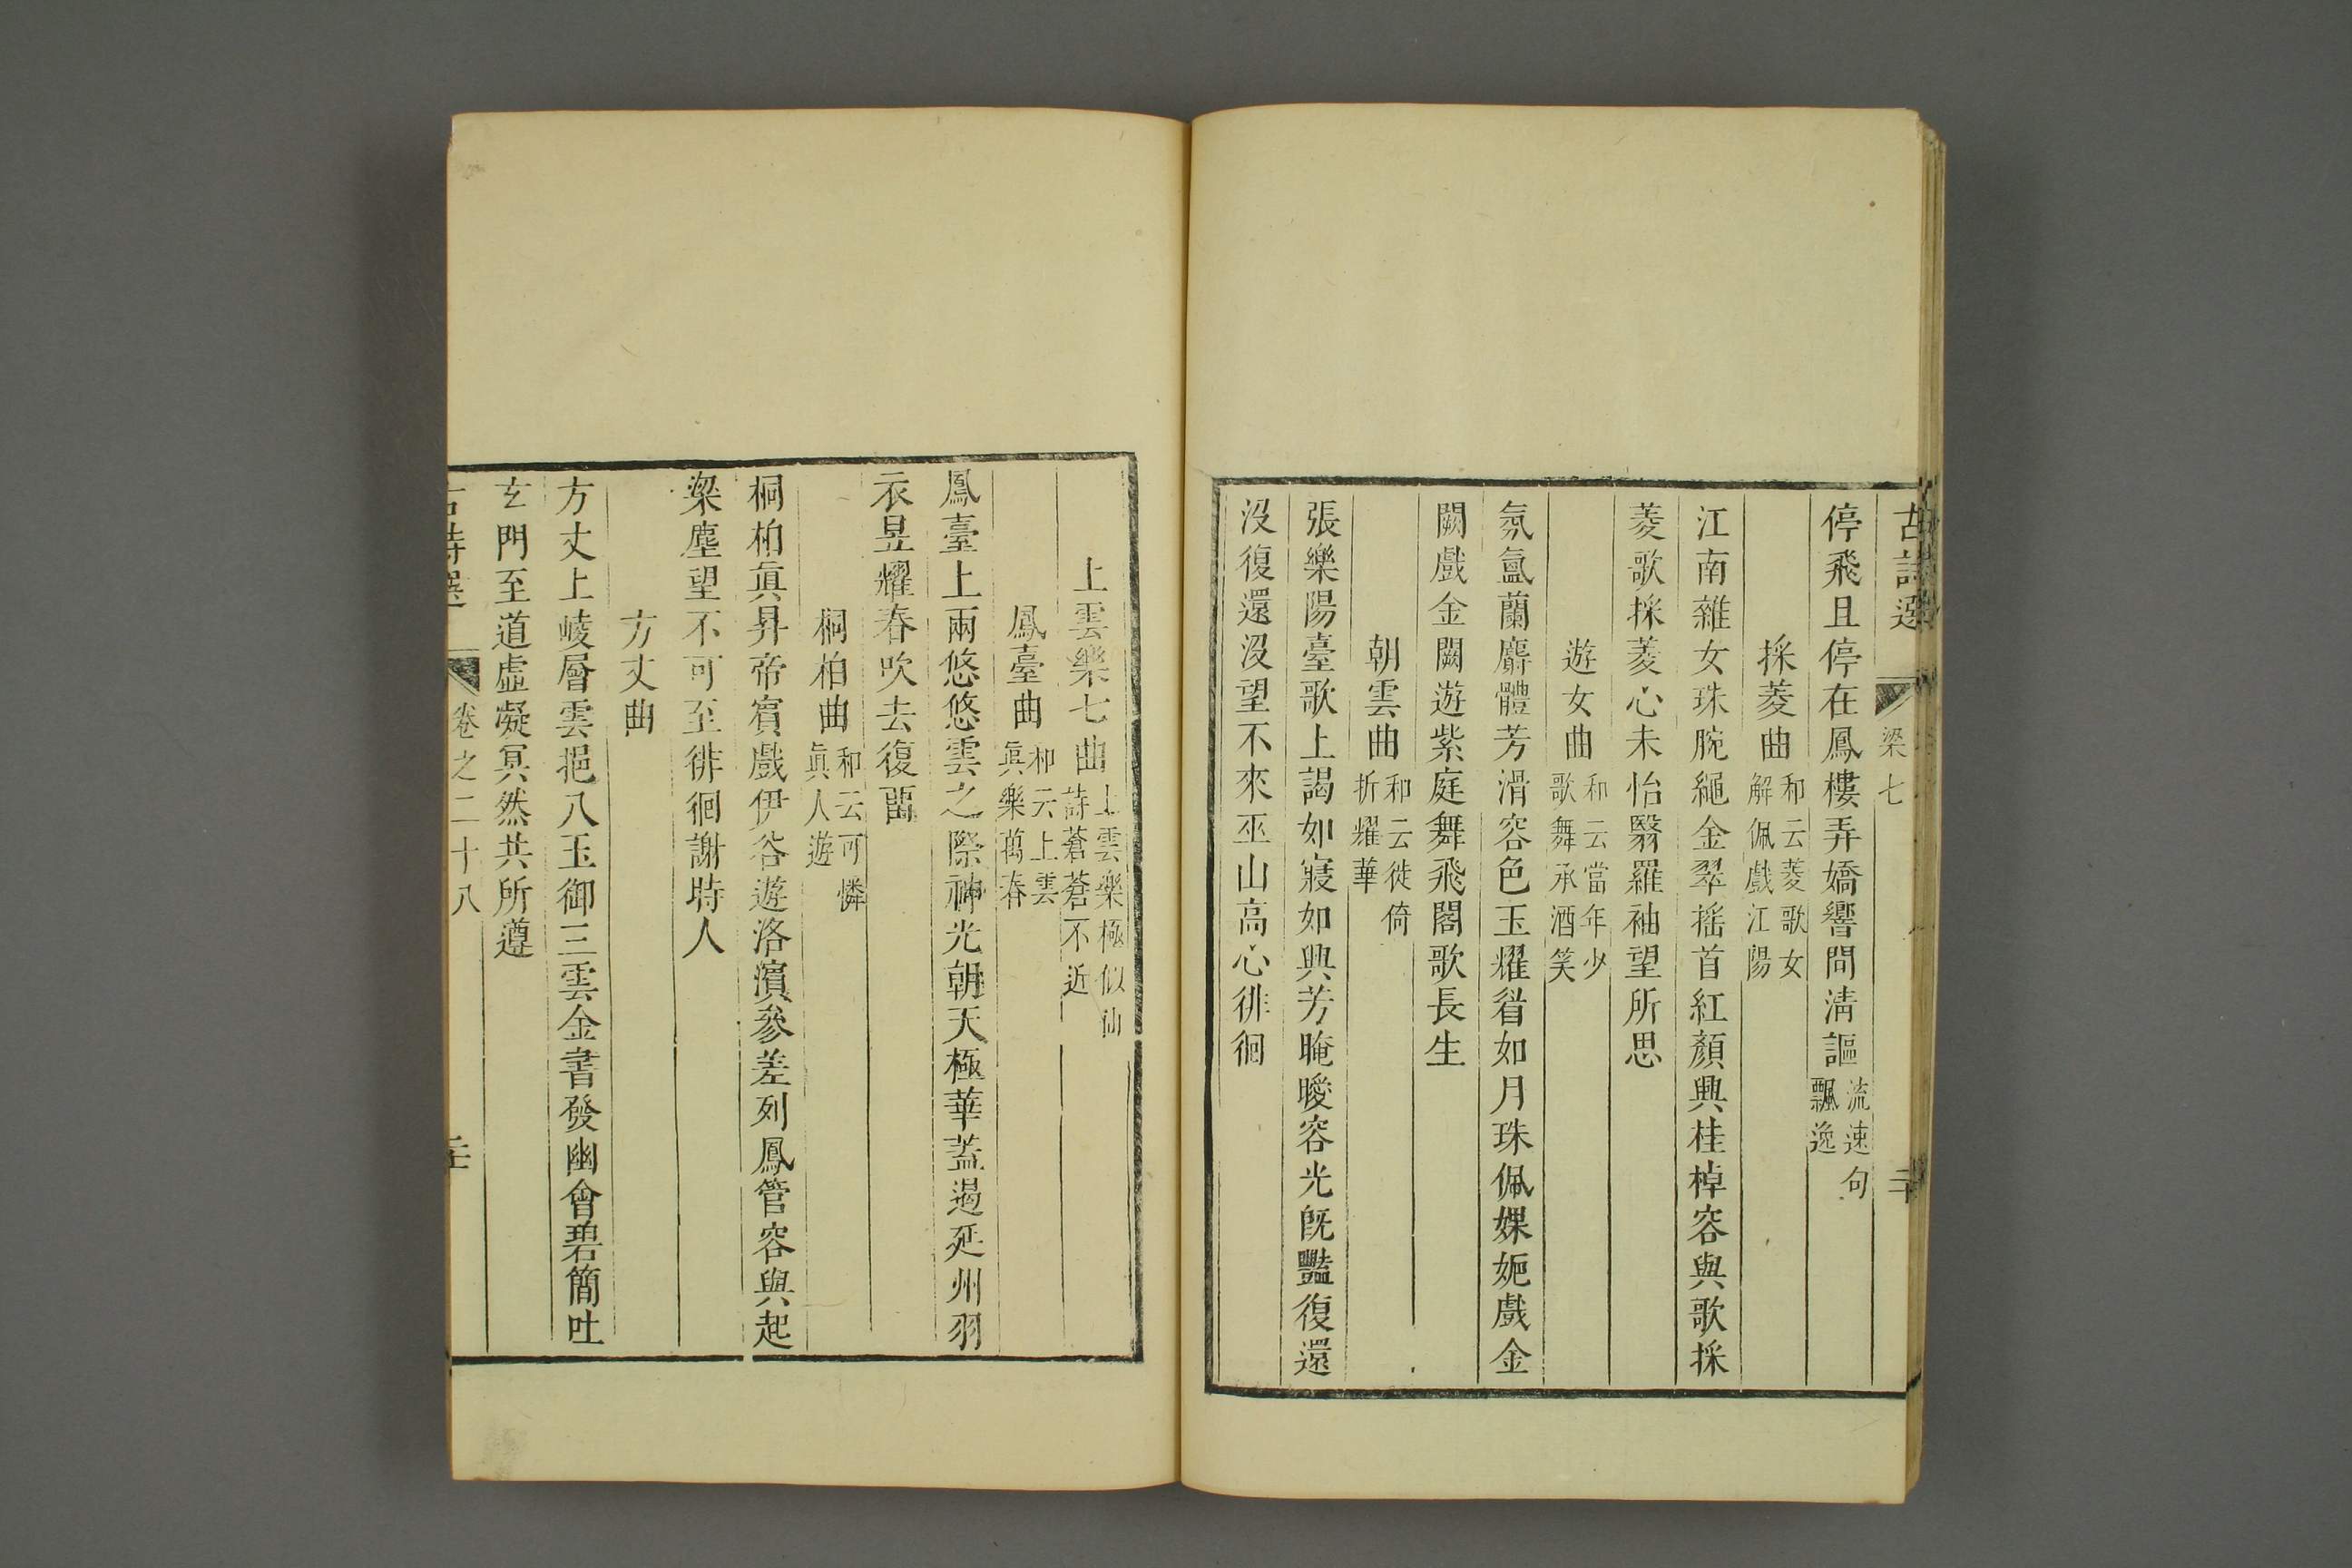 古詩選 梁七 二十
停飛且停在鳳樓弄嬌響間淸謳流速句飄逸
採菱曲和云菱歌女解佩戲江陽
江南雜女珠腕繩金翠搖首紅顏興桂棹容與歌採
菱歌採菱心未怡翳羅袖望所思
遊女曲和云當年少歌舞承酒笑
氛氳蘭麝體芳滑容色玉耀眉如月珠佩婐妮戲金
闕戲金闕遊紫庭舞飛閣歌長生
朝雲曲和云徙倚折耀華
張樂陽臺歌上謁如寢如興芳晻曖容光旣豔復還
沒復還沒望不來巫山高心徘徊
上雲樂七曲上雲樂極似仙詩蒼蒼不近
鳳臺曲和云上雲眞樂萬春
鳳臺上兩悠悠雲之際神光朝天極華蓋遏延州羽
衣昱耀春吹去復畱
桐柏曲和云可憐眞人遊
桐柏眞昇帝賓戲伊谷遊洛濱參差列鳳管容與起
梁塵望不可至徘徊謝時人
方丈曲
方丈上崚層雲挹八玉御三雲金書發幽會碧簡吐
玄門至道虛凝冥然共所遵
古詩選 卷之二十八